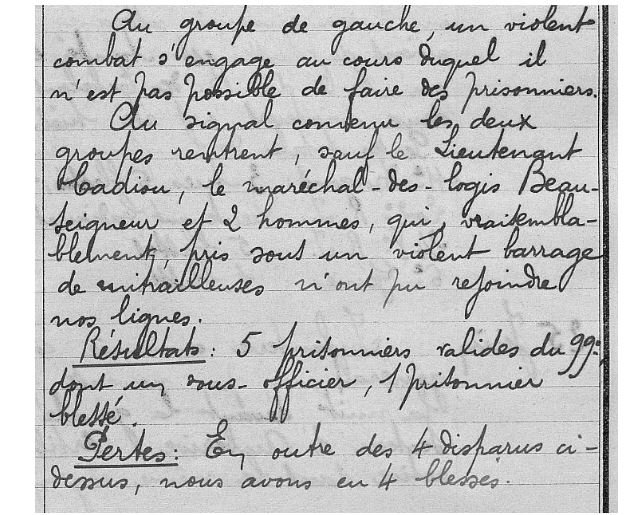 Au groupe de gauche, un violent
combat s'engage au cours duquel il
n'est pas possible de faire des prisonniers.
Au signal convenu les deux
groupes rentrent, sauf le Lieutenant
Cadiou, le maréchal-des-logis Beau-
seigneur et 2 hommes, qui, vraisembla-
blement, pris sous un violent barrage
de mitrailleuses n'ont pu rejoindre
nos lignes.
Résultats: 5 prisonniers valides du 99e,
dont un sous-officier, 1 prisonnier
blessé.
Pertes: En outre des 4 disparus ci-
dessus, nous avons eu 4 blessés.